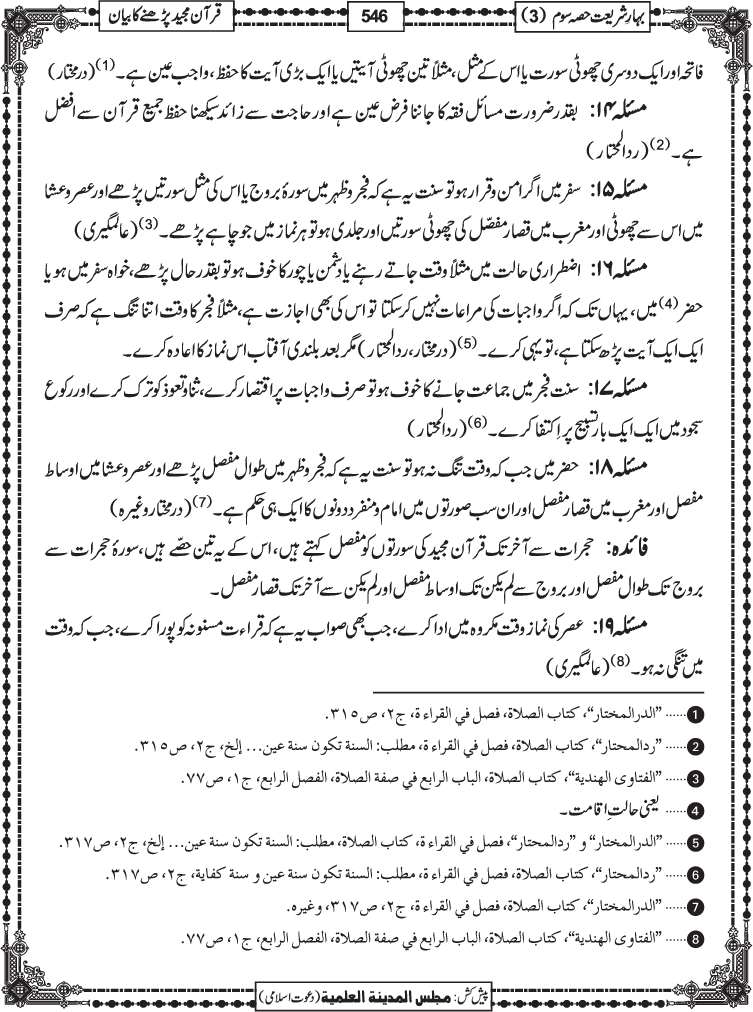 بہار شریعت حصہ سوم (3)
546
قرآن مجید پڑھنے کا بیان
فاتحہ اور ایک دوسری چھوٹی سورت یا اس کے مثل، مثلاً تین چھوٹی آیتیں یا ایک بڑی آیت کا حفظ، واجب عین ہے۔ (1) (درمختار)
مسئلہ ۱۴: بقدر ضرورت مسائل فقہ کا جاننا فرض عین ہے اور حاجت سے زائد سیکھنا حفظ جمیع قرآن سے افضل
ہے۔ (2) (ردالمحتار)
مسئلہ ۱۵: سفر میں اگر امن و قرار ہو تو سنت یہ ہے کہ فجر و ظہر میں سورۂ بروج یا اس کی مثل سورتیں پڑھے اور عصر و عشا
میں اس سے چھوٹی اور مغرب میں قصار مفصّل کی چھوٹی سورتیں اور جلدی ہو تو ہر نماز میں جو چاہے پڑھے۔ (3) (عالمگیری)
مسئلہ ۱۶: اضطراری حالت میں مثلاً وقت جاتے رہنے یا دشمن یا چور کا خوف ہو تو بقدر حال پڑھے، خواہ سفر میں ہو یا
حضر (4) میں، یہاں تک کہ اگر واجبات کی مراعات نہیں کر سکتا تو اس کی بھی اجازت ہے، مثلاً فجر کا وقت اتنا تنگ ہے کہ صرف
ایک ایک آیت پڑھ سکتا ہے، تو یہی کرے۔ (5) (درمختار، ردالمحتار) مگر بعد بلندی آفتاب اس نماز کا اعادہ کرے۔
مسئلہ ۱۷: سنت فجر میں جماعت جانے کا خوف ہو تو صرف واجبات پر اقتصار کرے، ثنا و تعوذ کو ترک کرے اور رکوع
سجود میں ایک ایک بار تسبیح پر اِکتفا کرے۔ (6) (ردالمحتار)
مسئلہ ۱۸: حضر میں جب کہ وقت تنگ نہ ہو تو سنت یہ ہے کہ فجر و ظہر میں طوال مفصل پڑھے اور عصر و عشا میں اوساط
مفصل اور مغرب میں قصار مفصل اور ان سب صورتوں میں امام و منفرد دونوں کا ایک ہی حکم ہے۔ (7) (درمختار وغیرہ)
فائدہ: حجرات سے آخر تک قرآن مجید کی سورتوں کو مفصل کہتے ہیں، اس کے یہ تین حصّے ہیں، سورۂ حجرات سے
بروج تک طوال مفصل اور بروج سے لم یکن تک اوساط مفصل اور لم یکن سے آخر تک قصار مفصل۔
مسئلہ ۱۹: عصر کی نماز وقت مکروہ میں ادا کرے، جب بھی صواب یہ ہے کہ قراءت مسنونہ کو پورا کرے، جب کہ وقت
میں تنگی نہ ہو۔ (8) (عالمگیری)
1 ...... ”الدرالمختار“، كتاب الصلاة، فصل في القراءة، ج٢، ص٣١٥.
2 ...... ”ردالمحتار“، كتاب الصلاة، فصل في القراءة، مطلب: السنة تكون سنة عين... إلخ، ج٢، ص٣١٥.
3 ...... ”الفتاوى الهندية“، كتاب الصلاة، الباب الرابع في صفة الصلاة، الفصل الرابع، ج١، ص٧٧.
4 ...... یعنی حالتِ اقامت۔
5 ...... ”الدرالمختار“ و ”ردالمحتار“، فصل في القراءة، كتاب الصلاة، مطلب: السنة تكون سنة عين... إلخ، ج٢، ص٣١٧.
6 ...... ”ردالمحتار“، كتاب الصلاة، فصل في القراءة، مطلب: السنة تكون سنة عين و سنة كفاية، ج٢، ص٣١٧.
7 ...... ”الدرالمختار“، كتاب الصلاة، فصل في القراءة، ج٢، ص٣١٧، وغيره.
8 ...... ”الفتاوى الهندية“، كتاب الصلاة، الباب الرابع في صفة الصلاة، الفصل الرابع، ج١، ص٧٧.
پیش کش: مجلس المدینة العلمیة (دعوت اسلامی)